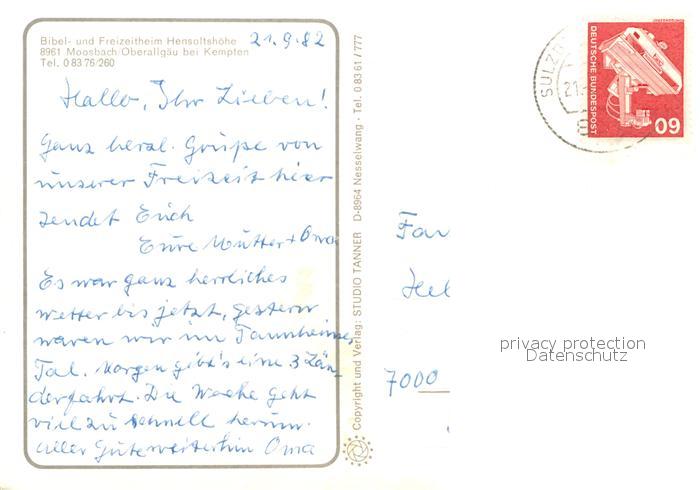 Bibel- und Freizeitheim Hensoltshöhe
8961 Moosbach/Oberallgäu bei Kempten
Tel. 0 83 76/260
21.9.82
Hallo, Ihr Lieben!
Ganz herzl. Grüße von
unserer Freizeit hier
sendet Euch
Eure Mutter + Oma
Es war ganz herrliches
Wetter bis jetzt, gestern
waren wir im Tannheimer
Tal. Morgen gibt's eine 3 Län-
derfahrt. Die Woche geht
viel zu schnell herum.
Alles Gute weiterhin Oma
Copyright und Verlag: STUDIO TANNER D-8964 Nesselwang · Tel. 0 83 61 / 777
SULZB
21.
8
DEUTSCHE BUNDESPOST
60
Fam
Hel
7000
privacy protection
Datenschutz